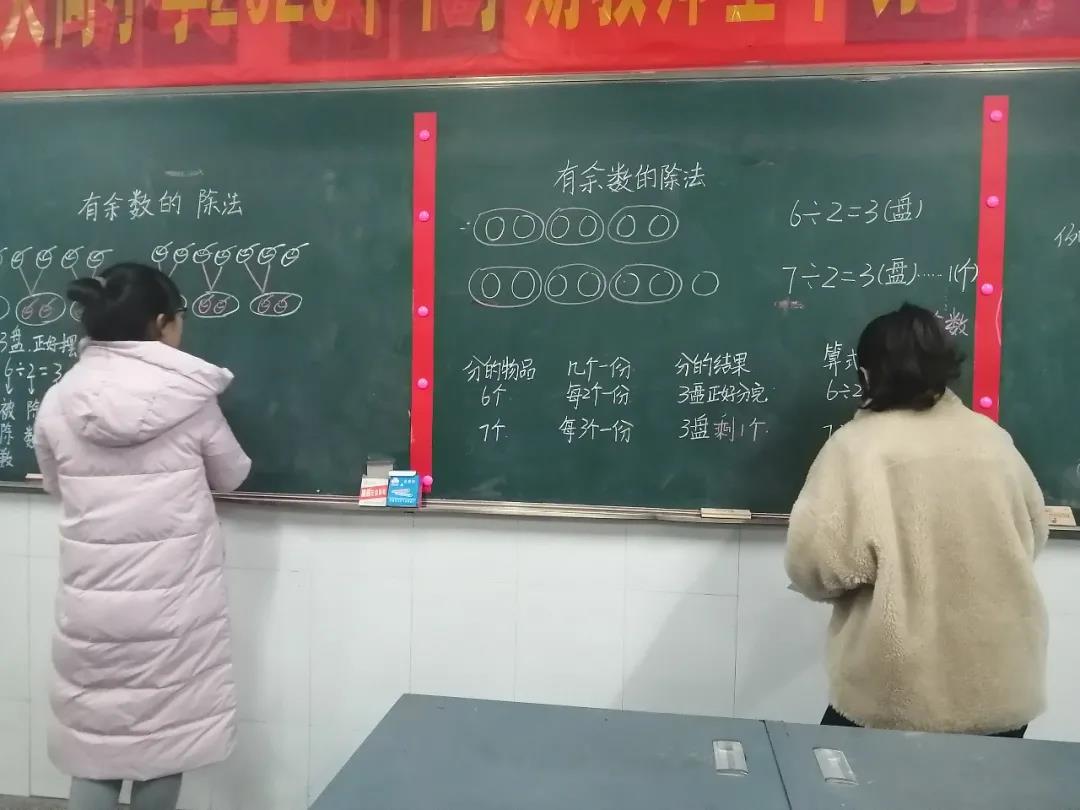 小学2020年下学期教师基本功
有余数的 除法
3盘.正好摆
6÷2=3
被 除
除 数
数
有余数的除法
6÷2=3(盘)
7÷2=3(盘)……1(个)
数
分的物品 几个一份 分的结果 算式
6个. 每2个一份 3盘正好分完 6÷2
7个. 每3个一份 3盘剩1个. 7
例